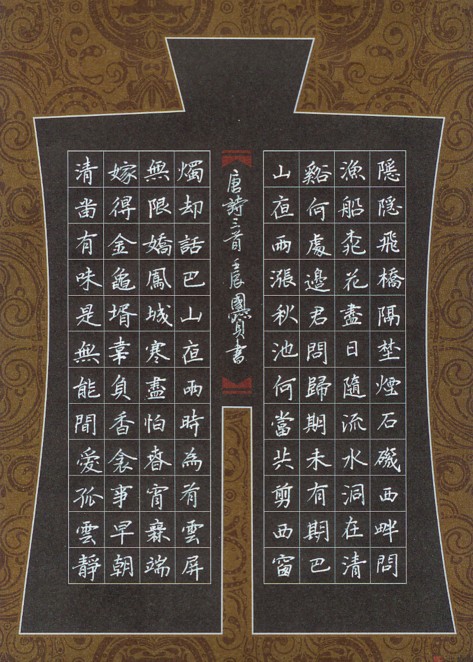 隱隱飛橋隔埜煙石磯西畔問
漁船桃花盡日隨流水洞在清
谿何處邊君問歸期未有期巴
山夜雨漲秋池何當共剪西窗
唐詩三首 壬辰 書
燭却話巴山夜雨時為有雲屏
無限嬌鳳城寒盡怕春宵無端
嫁得金龜婿辜負香衾事早朝
清旹有味是無能閒愛孤雲靜